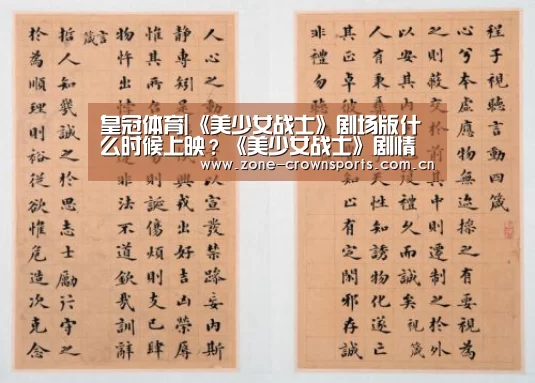 皇冠体育|《美少女战士》剧场版什
么时候上映？《美少女战士》剧情
www.zone-crownsports.com.cn
程子視聽言動四箴
心兮本虛應物無迹操之有要視為
之則蔽交於前其中則遷制之於外
以安其內復禮久而誠矣視箴
人有秉天性知誘物化遂亡
其正卓彼知止有定閑邪存誠
非禮勿聽
人心之動以宣發禁躁妄內斯
靜專矧是興戎出好吉凶榮辱
惟其所則誕傷煩則支己肆
物忤出悖非法不道欽哉訓辭
言箴
哲人知幾誠之於思志士勵行守之
於為順理則裕從欲惟危造次克念